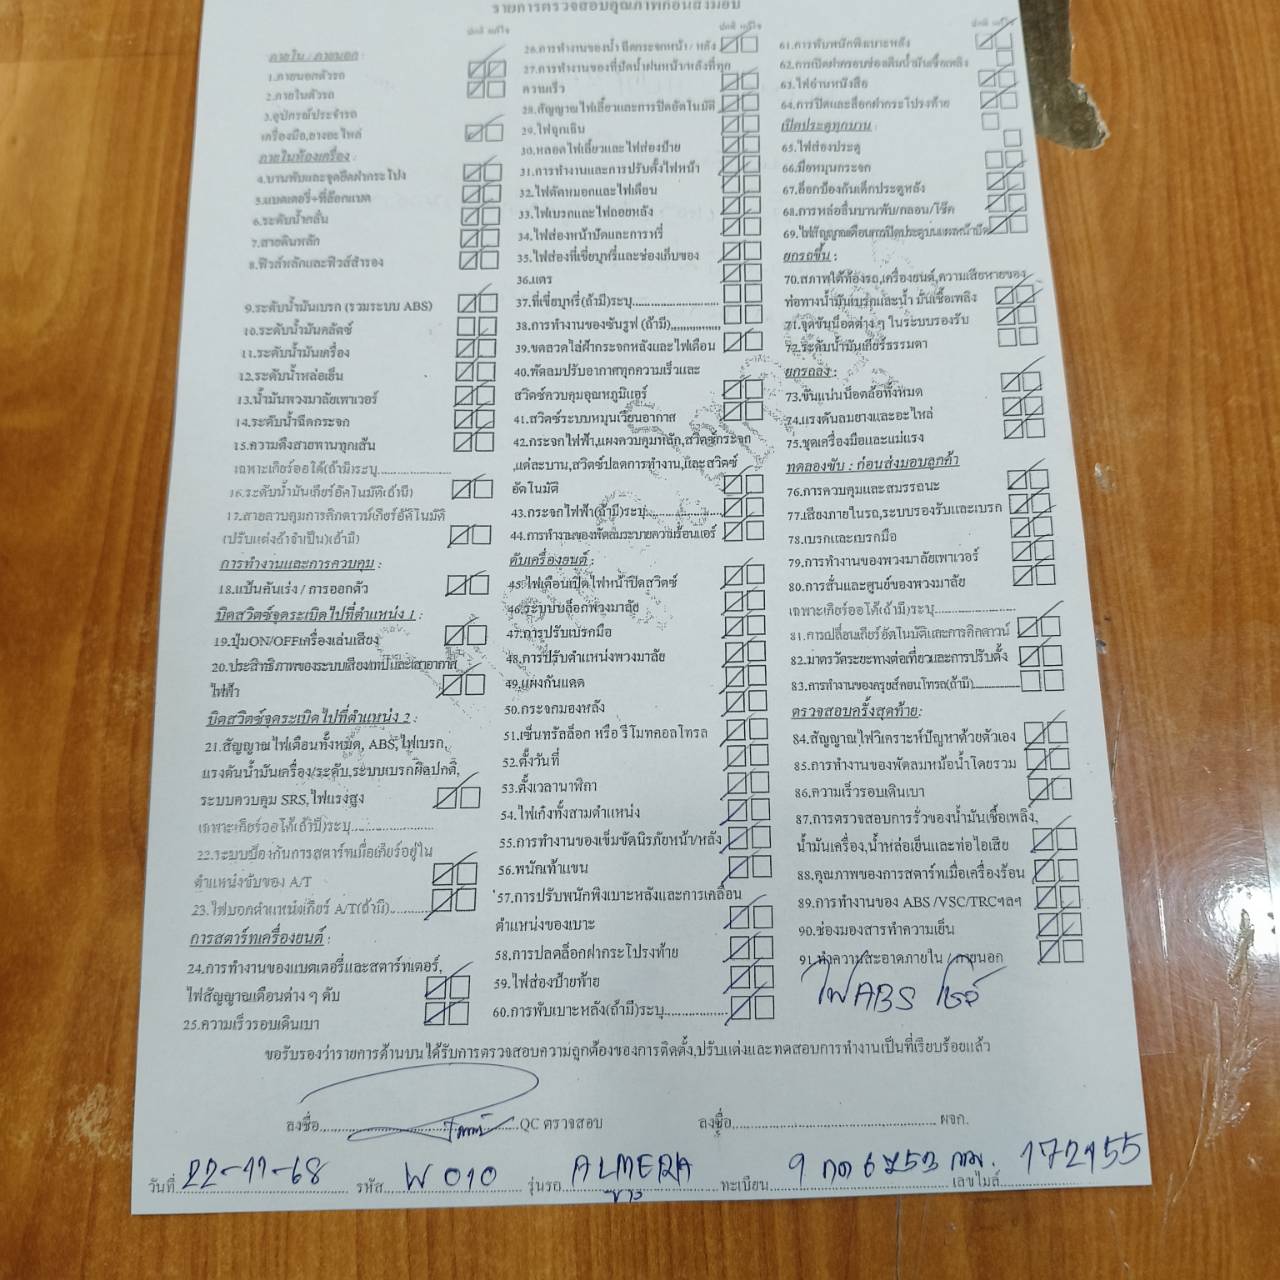 รายการตรวจสอบคุณภาพก่อนส่งมอบ
ปกติ แก้ไข
ภายใน / ภายนอก :
1.ภายนอกตัวรถ
2.ภายในตัวรถ
3.อุปกรณ์ประจำรถ
เครื่องมือ,ยางอะไหล่
ภายในห้องเครื่อง :
4.บานพับและจุดยึดฝากระโปง
5.แบตเตอรี่+ที่ล็อกแบต
6.ระดับน้ำกลั่น
7.สายดินหลัก
8.ฟิวส์หลักและฟิวส์สำรอง
9.ระดับน้ำมันเบรก (รวมระบบ ABS)
10.ระดับน้ำมันคลัตช์
11.ระดับน้ำมันเครื่อง
12.ระดับน้ำหล่อเย็น
13.น้ำมันพวงมาลัยเพาเวอร์
14.ระดับน้ำฉีดกระจก
15.ความตึงสายพานทุกเส้น
เฉพาะเกียร์ออโต้(ถ้ามี)ระบุ....................
16.ระดับน้ำมันเกียร์อัตโนมัติ(ถ้ามี)
17.สายควบคุมการคิกดาวน์เกียร์อัตโนมัติ
(ปรับแต่งถ้าจำเป็น)(ถ้ามี)
การทำงานและการควบคุม :
18.แป้นคันเร่ง / การออกตัว
บิดสวิตซ์จุดระเบิดไปที่ตำแหน่ง 1 :
19.ปุ่มON/OFFเครื่องเล่นเสียง
20.ประสิทธิภาพของระบบเสียง/เทปและเสาอากาศ
ไฟฟ้า
บิดสวิตซ์จุดระเบิดไปที่ตำแหน่ง 2 :
21.สัญญาณไฟเตือนทั้งหมด, ABS,ไฟเบรก,
แรงดันน้ำมันเครื่อง/ระดับ,ระบบเบรกผิดปกติ,
ระบบควบคุม SRS,ไฟแรงสูง
เฉพาะเกียร์ออโต้(ถ้ามี)ระบุ....................
22.ระบบป้องกันการสตาร์ทเมื่อเกียร์อยู่ใน
ตำแหน่งขับของ A/T
23.ไฟบอกตำแหน่งเกียร์ A/T(ถ้ามี)..........
การสตาร์ทเครื่องยนต์ :
24.การทำงานของแบตเตอรี่และสตาร์ทเตอร์,
ไฟสัญญาณเตือนต่าง ๆ ดับ
25.ความเร็วรอบเดินเบา
ปกติ แก้ไข
26.การทำงานของน้ำฉีดกระจกหน้า / หลัง
27.การทำงานของที่ปัดน้ำฝนหน้า/หลังที่ทุก
ความเร็ว
28.สัญญาณไฟเลี้ยวและการปิดอัตโนมัติ
29.ไฟฉุกเฉิน
30.หลอดไฟเลี้ยวและไฟส่องป้าย
31.การทำงานและการปรับตั้งไฟหน้า
32.ไฟตัดหมอกและไฟเตือน
33.ไฟเบรกและไฟถอยหลัง
34.ไฟส่องหน้าปัดและการหรี่
35.ไฟส่องที่เขี่ยบุหรี่และช่องเก็บของ
36.แตร
37.ที่เขี่ยบุหรี่(ถ้ามี)ระบุ........................
38.การทำงานของซันรูฟ (ถ้ามี)..............
39.ขดลวดไล่ฝ้ากระจกหลังและไฟเตือน
40.พัดลมปรับอากาศทุกความเร็วและ
สวิตช์ควบคุมอุณหภูมิแอร์
41.สวิตช์ระบบหมุนเวียนอากาศ
42.กระจกไฟฟ้า,แผงควบคุมหลัก,สวิตซ์กระจก
,แต่ละบาน,สวิตซ์ปลดการทำงาน,และสวิตซ์
อัตโนมัติ
43.กระจกไฟฟ้า(ถ้ามี)ระบุ....................
44.การทำงานของพัดลมระบายความร้อนแอร์
ดับเครื่องยนต์ :
45.ไฟเตือนเปิดไฟหน้าปิดสวิตซ์
46.ระบบบล็อกพวงมาลัย
47.การปรับเบรกมือ
48.การปรับตำแหน่งพวงมาลัย
49.แผงกันแดด
50.กระจกมองหลัง
51.เซ็นทรัลล็อก หรือ รีโมทคอลโทรล
52.ตั้งวันที่
53.ตั้งเวลานาฬิกา
54.ไฟเก๋งทั้งสามตำแหน่ง
55.การทำงานของเข็มขัดนิรภัยหน้า/หลัง
56.พนักเท้าแขน
57.การปรับพนักพิงเบาะหลังและการเคลื่อน
ตำแหน่งของเบาะ
58.การปลดล็อกฝากระโปรงท้าย
59.ไฟส่องป้ายท้าย
60.การพับเบาะหลัง(ถ้ามี)ระบุ..................
ปกติ แก้ไข
61.การพับพนักพิงเบาะหลัง
62.การเปิดฝาครอบช่องเติมน้ำมันเชื้อเพลิง
63.ไฟอ่านหนังสือ
64.การปิดและล็อกฝากระโปรงท้าย
เปิดประตูทุกบาน :
65.ไฟส่องประตู
66.มือหมุนกระจก
67.ล็อกป้องกันเด็กประตูหลัง
68.การหล่อลื่นบานพับ/กลอน/โช๊ค
69.ไฟสัญญาณเตือนการเปิดประตูบนแผงหน้าปัด
ยกรถขึ้น :
70.สภาพใต้ท้องรถ,เครื่องยนต์,ความเสียหายของ
ท่อทางน้ำมันเบรกและน้ำ มันเชื้อเพลิง
71.จุดขันน็อตต่าง ๆ ในระบบรองรับ
72.ระดับน้ำมันเกียร์ธรรมดา
ยกรถลง :
73.ขันแน่นน็อตล้อทั้งหมด
74.แรงดันลมยางและอะไหล่
75.ชุดเครื่องมือและแม่แรง
ทดลองขับ : ก่อนส่งมอบลูกค้า
76.การควบคุมและสมรรถนะ
77.เสียงภายในรถ,ระบบรองรับและเบรก
78.เบรกและเบรกมือ
79.การทำงานของพวงมาลัยเพาเวอร์
80.การสั่นและศูนย์ของพวงมาลัย
เฉพาะเกียร์ออโต้(ถ้ามี)ระบุ....................
81.การเปลี่ยนเกียร์อัตโนมัติและการคิกดาวน์
82.มาตรวัดระยะทางต่อเที่ยวและการปรับตั้ง
83.การทำงานของครูซส์คอนโทรล(ถ้ามี)............
ตรวจสอบครั้งสุดท้าย:
84.สัญญาณไฟวิเคราะห์ปัญหาด้วยตัวเอง
85.การทำงานของพัดลมหม้อน้ำโดยรวม
86.ความเร็วรอบเดินเบา
87.การตรวจสอบการรั่วของน้ำมันเชื้อเพลิง,
น้ำมันเครื่อง,น้ำหล่อเย็นและท่อไอเสีย
88.คุณภาพของการสตาร์ทเมื่อเครื่องร้อน
89.การทำงานของ ABS /VSC/TRCฯลฯ
90.ช่องมองสารทำความเย็น
91.ทำความสะอาดภายใน / ภายนอก
ไฟ ABS โชว์
ขอรับรองว่ารายการด้านบนได้รับการตรวจสอบความถูกต้องของการติดตั้ง,ปรับแต่งและทดสอบการทำงานเป็นที่เรียบร้อยแล้ว
ลงชื่อ..............................QC ตรวจสอบ ลงชื่อ.............................. ผจก.
วันที่ 22-11-68 รหัส W 010 รุ่นรถ ALMERA ทะเบียน 9 กด 6753 กทม. เลขไมล์ 172155
ขาว